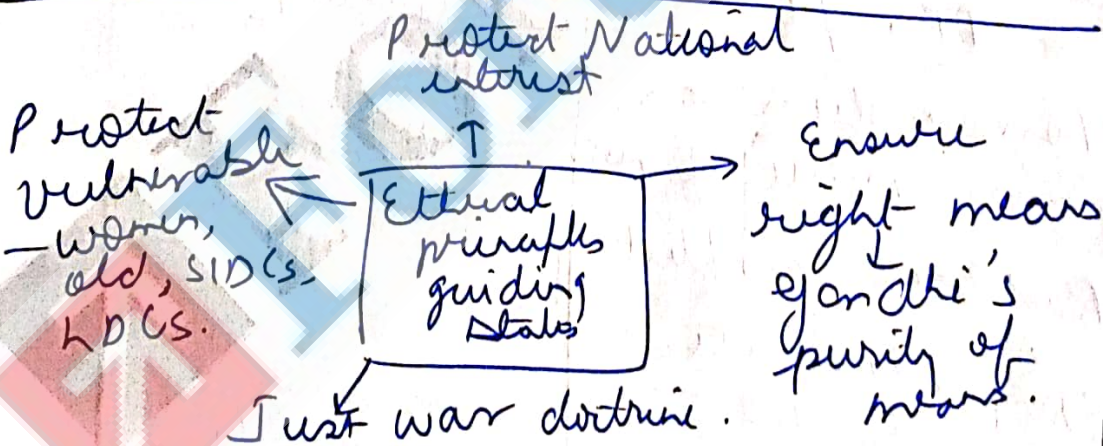 Protect National
interest
Protect
vulnerable
- women,
old, SIDCs,
LDCs.
Ethical
principles
guiding
states
Ensure
right means
Gandhi's
purity of
means.
Just war doctrine.